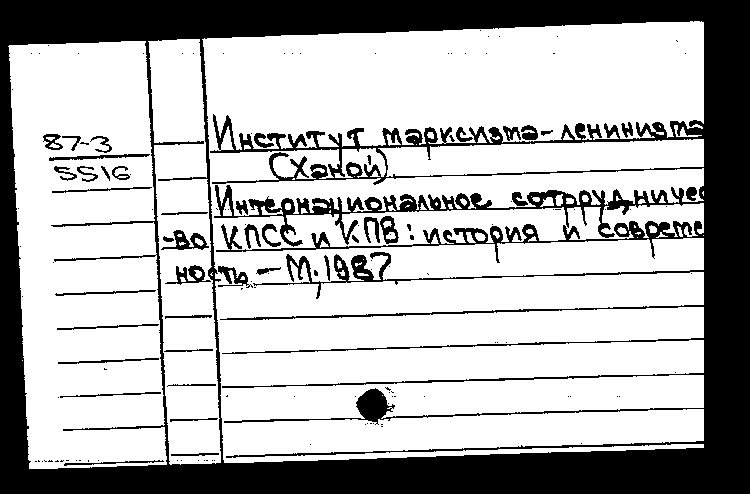 87-3
5516
Институт марксизма-ленинизма
(Ханой).
Интернациональное сотрудничес
-во КПСС и КПВ: история и совреме
ность - М., 1987.